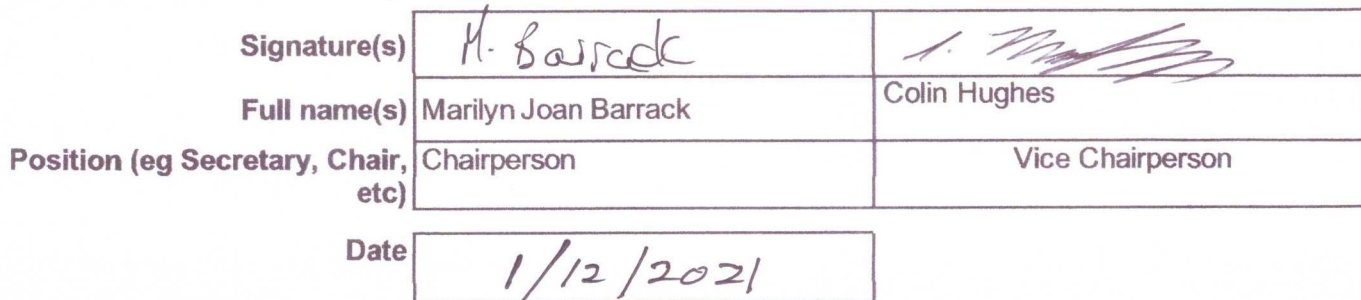 Signature(s) M. Barrack
Full name(s) Marilyn Joan Barrack Colin Hughes
Position (eg Secretary, Chair, Chairperson Vice Chairperson
etc)
Date 1/12/2021